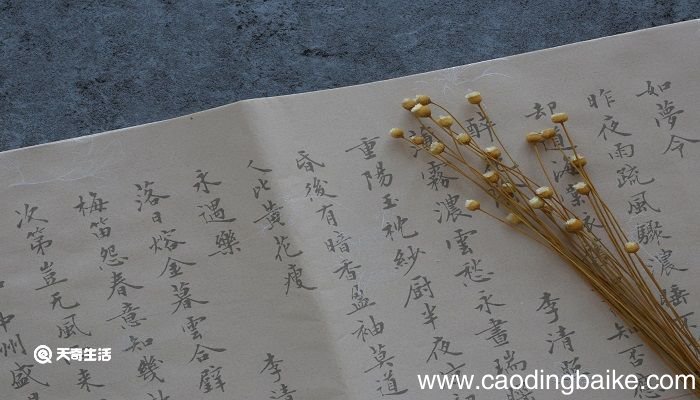 如夢令
昨夜雨疏風驟濃睡不
却道海棠依知否應
醉李清照
薄霧濃雲愁永晝瑞腦
重陽玉枕紗厨半夜
昏後有暗香盈袖莫道
人比黃花瘦
永遇樂 李清
落日熔金暮雲合璧
梅笛怨春意知幾
次第豈无風来
中州盛
天奇生活
www.caodingbaike.com